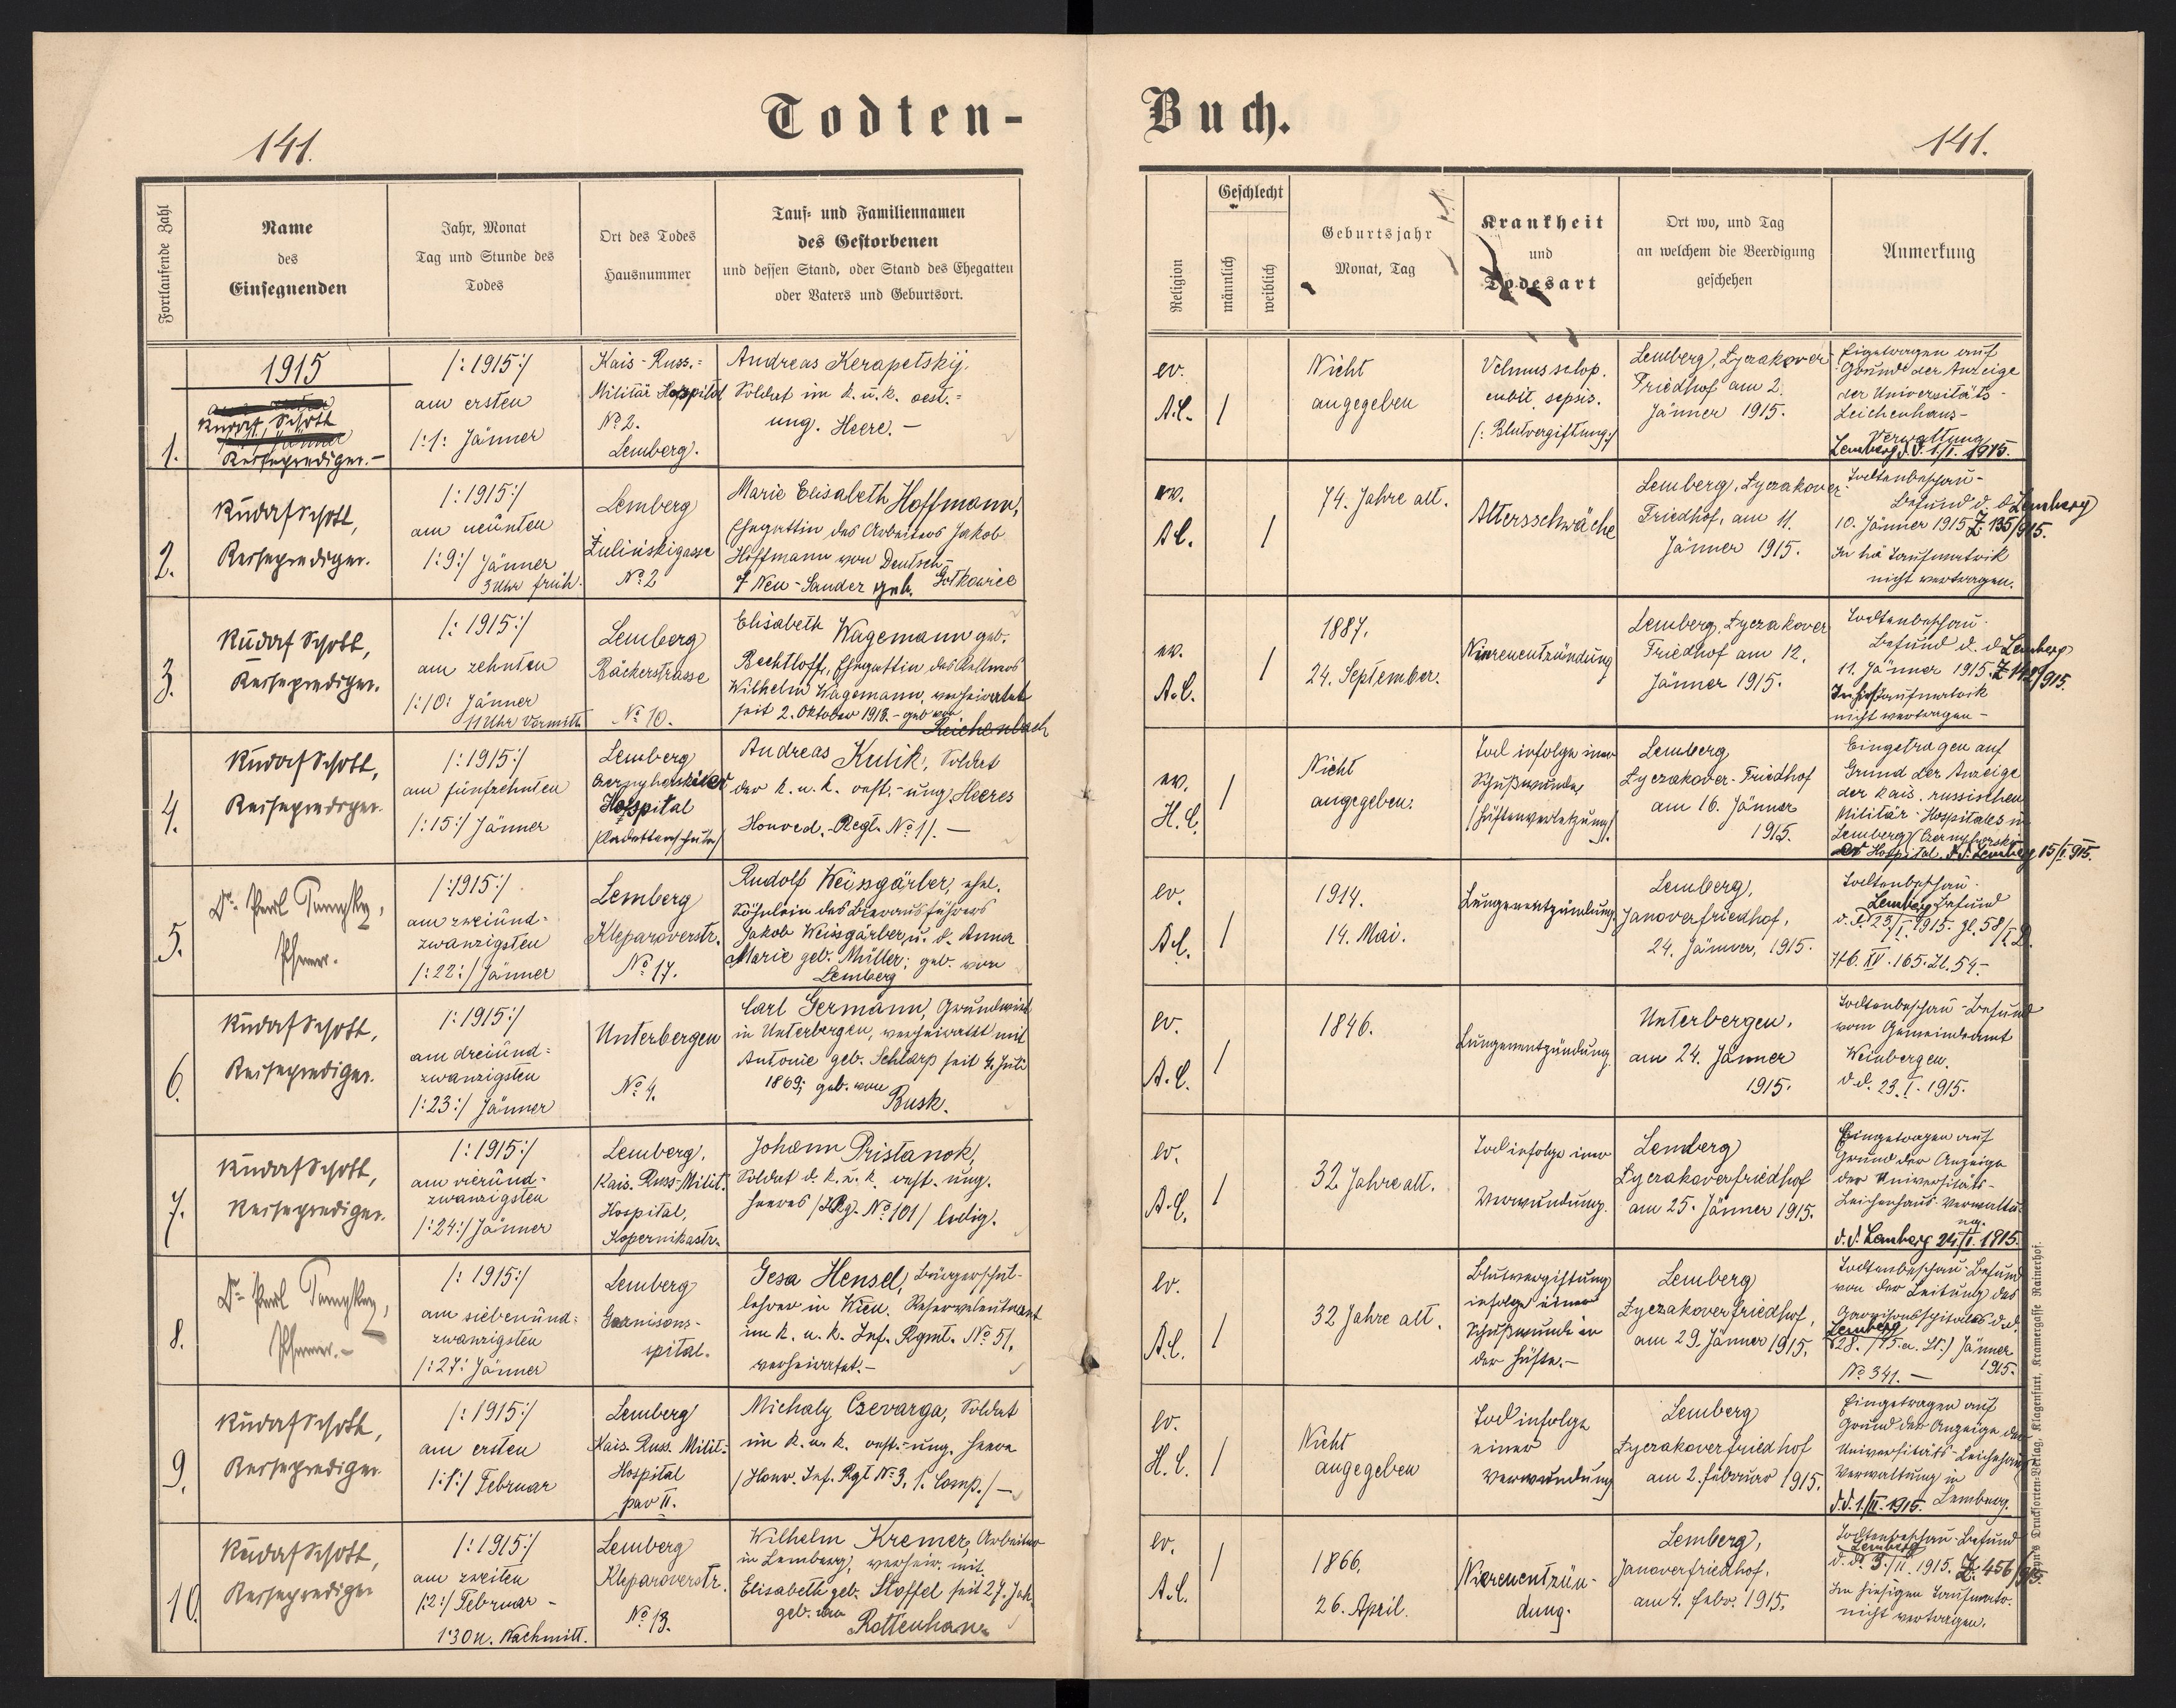 Todten-
141.
Fortlaufende Zahl
Name
des
Einsegnenden
Jahr, Monat
Tag und Stunde des
Todes
Ort des Todes
Hausnummer
Tauf- und Familiennamen
des Gestorbenen
und dessen Stand, oder Stand des Ehegatten
oder Vaters und Geburtsort.
Buch.
141.
Religion
Geschlecht
männlich
weiblich
Geburtsjahr
Monat, Tag
Krankheit
und
Todesart
Ort wo, und Tag
an welchem die Beerdigung
geschehen
Anmerkung
1915
1.
Schott
Reiseprediger.-
/:1915:/
am ersten
/:1: Jänner
Kais-Russ.=
Militär Hospital
No 2.
Lemberg.
Andreas Kerapetskij.
Soldat im k. u. k. oest.=
ung. Heere.-
ev.
A.C.
/
Nicht
angegeben
sepsis.
/: Blutvergiftung:/
Lemberg, Lyczakover
Friedhof am 2.
Jänner 1915.
Eigetragen auf
Grund der Anzeige
der Universitäts-
Leichenhaus-
Verwaltung
Lemberg d. d. 1./I. 1915.
2.
Rudolf Schott,
Reiseprediger.
/:1915:/
am neunten
/:9:/ Jänner
3 Uhr früh.
Lemberg
Zulińskigasse
No 2
Marie Elisabeth Hoffmann,
Ehegattin des Arbeiters Jakob
Hoffmann von Deutsch-
Neu-Sander geb. Gołkowice
ev.
A.C.
/
74. Jahre alt.
Altersschwäche
Lemberg, Lyczakover
Friedhof, am 11.
Jänner 1915.
Todtenbeschau-
Befund d. d. Lemberg
10. Jänner 1915 Z. 135/915.
In Taufmatrik
nicht vertragen.
3.
Rudolf Schott,
Reiseprediger.
/:1915:/
am zehnten
/:10: Jänner
11 Uhr Vormitt.
Lemberg
Bäckerstrasse
No 10.
Elisabeth Wagemann geb.
Bechtloff, Ehegattin des Kellners
Wilhelm Wagemann, verheiratet
seit 2. Oktober 1913.- geb. von
Reichenbach
ev.
A.C.
/
1887.
24. September.
Nierenentzündung
Lemberg, Lyczakover
Friedhof am 12.
Jänner 1915.
Todtenbeschau-
Befund d. d. Lemberg
11. Jänner 1915.
Taufmatrik
nicht vertragen-
4.
Rudolf Schott,
Reiseprediger.
/:1915:/
am fünfzehnten
/:15:/ Jänner
Lemberg
Hospital
/Kadettenschule/
Andreas Kulik, Soldat
der k. u. k. oest.-ung. Heeres
Honved.-Regt. No 1/.-
ev.
H.C.
/
Nicht
angegeben.
Tod infolge einer
Schußwunde
/Hüftenverletzung/.
Lemberg
Lyczakover-Friedhof
am 16. Jänner
1915.
Eingetragen auf
Grund der Anzeige
der kais. russischen
Militär-Hospitales in
Lemberg
Hospital. d. d. Lemberg 15/I. 915.
5.
Dr.
Pfarrer.
/:1915:/
am zweiund-
zwanzigsten
/:22:/ Jänner
Lemberg
Kleparoverstr.
No 17.
Rudolf Weissgärber, ehel.
Söhnlein des Bierausführers
Jakob Weissgärber u. d. Anna
Marie geb. Müller; geb. von
Lemberg
ev.
A.C.
/
1914.
14. Mai.
Lungenentzündung.
Lemberg,
Janoverfriedhof,
24. Jänner, 1915.
Todtenbeschau-
Lemberg Befund
d. d. 23/I. 1915.
XV. 165. Zl. 54-
6.
Rudolf Schott,
Reiseprediger.
/:1915:/
am dreiund=
zwanzigsten
/:23:/ Jänner
Unterbergen
No 4.
Carl Germann, Grundwirt
in Unterbergen, verheiratet mit
Antonie geb. Schlarp seit 4. Juli
1869; geb. von
Busk.
ev.
A.C.
/
1846.
Lungenentzündung.
Unterbergen,
am 24. Jänner
1915.
Todtenbeschau-Befund
vom Gemeindeamt
Weinbergen.
d. d. 23. I. 1915.
7.
Rudolf Schott,
Reiseprediger.
/:1915:/
am vierund-
zwanzigsten
/:24:/ Jänner
Lemberg,
Kais. Russ-Milit.
Hospital,
Kopernikastr.
Johann Pristanok,
Soldat d. k. u. k. oest. ung.
Heeres No 101/ ledig.
ev.
A.C.
/
32. Jahre alt.
Tod infolge einer
Verwundung.
Lemberg
Lyczakoverfriedhof
am 25. Jänner 1915.
Eingetragen auf
Grund der Anzeige
der Universitäts-
Leichenhaus-Verwaltu-
ng.
d. d. Lemberg 24./I. 1915.
8.
Dr.
Pfarrer.-
/:1915:/
am siebenund=
zwanzigsten
/:27: Jänner
Lemberg
Garnisons-
spital.
Gesa Hensel, Bürgerschul-
lehrer in Wien. Reserveleutnant
im k. u. k. Inf. Rgmt. No 51,
verheiratet.-
ev.
A.C.
/
32 Jahre alt.
Blutvergiftung
infolge einer
Schußwunde in
der Hüfte.-
Lemberg
Lyczakoverfriedhof,
am 29. Jänner 1915.
Todtenbeschau-Befund
von der Leitung des
Garnisonsspitales d. d.
Lemberg
Jänner
1915.
No 341.-
9.
Rudolf Schott,
Reiseprediger.
/:1915:/
am ersten
/:1:/ Februar
Lemberg
Kais. Russ. Milit-
Hospital
pav II.
Michaly Csevarga, Soldat
im k. u. k. oest.-ung. Heere
/Honv. Inf. Rgt No 3, 1. Comp./-
ev.
H.C.
/
Nicht
angegeben
Tod infolge
einer
Verwundung
Lemberg
Lyczakoverfriedhof
am 2. Februar 1915.
Eingetragen auf
Grund der Anzeige der
Universitäts-Leichenhaus
Verwaltung in
d. d. 1./II. 1915. Lemberg.
10.
Rudolf Schott,
Reiseprediger
/:1915:/
am zweiten
/:2:/ Februar-
1·30 u. Nachmitt.
Lemberg
Kleparoverstr.
No 13.
Wilhelm Kremer, Arbeiter
in Lemberg, verheir. mit
Elisabeth geb. Stoffel seit 27.
geb. von
Rottenhan
ev.
A.C.
/
1866,
26. April.
Nierenentzün-
dung.
Lemberg,
Janoverfriedhof.
am 4. Febr. 1915.
Todtenbeschau-Befund
Lemberg
d. d. 3./II. 1915. Z. 456/915.
Im hiesigen Taufmatr.
nicht vertragen.
Drucksorten-Verlag, Klagenfurt, Kramergasse Rainerhof.